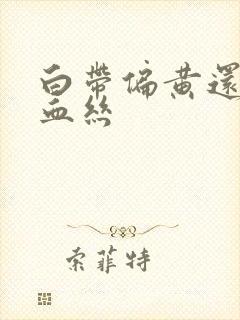 白帶偏黃還
血絲
索菲特